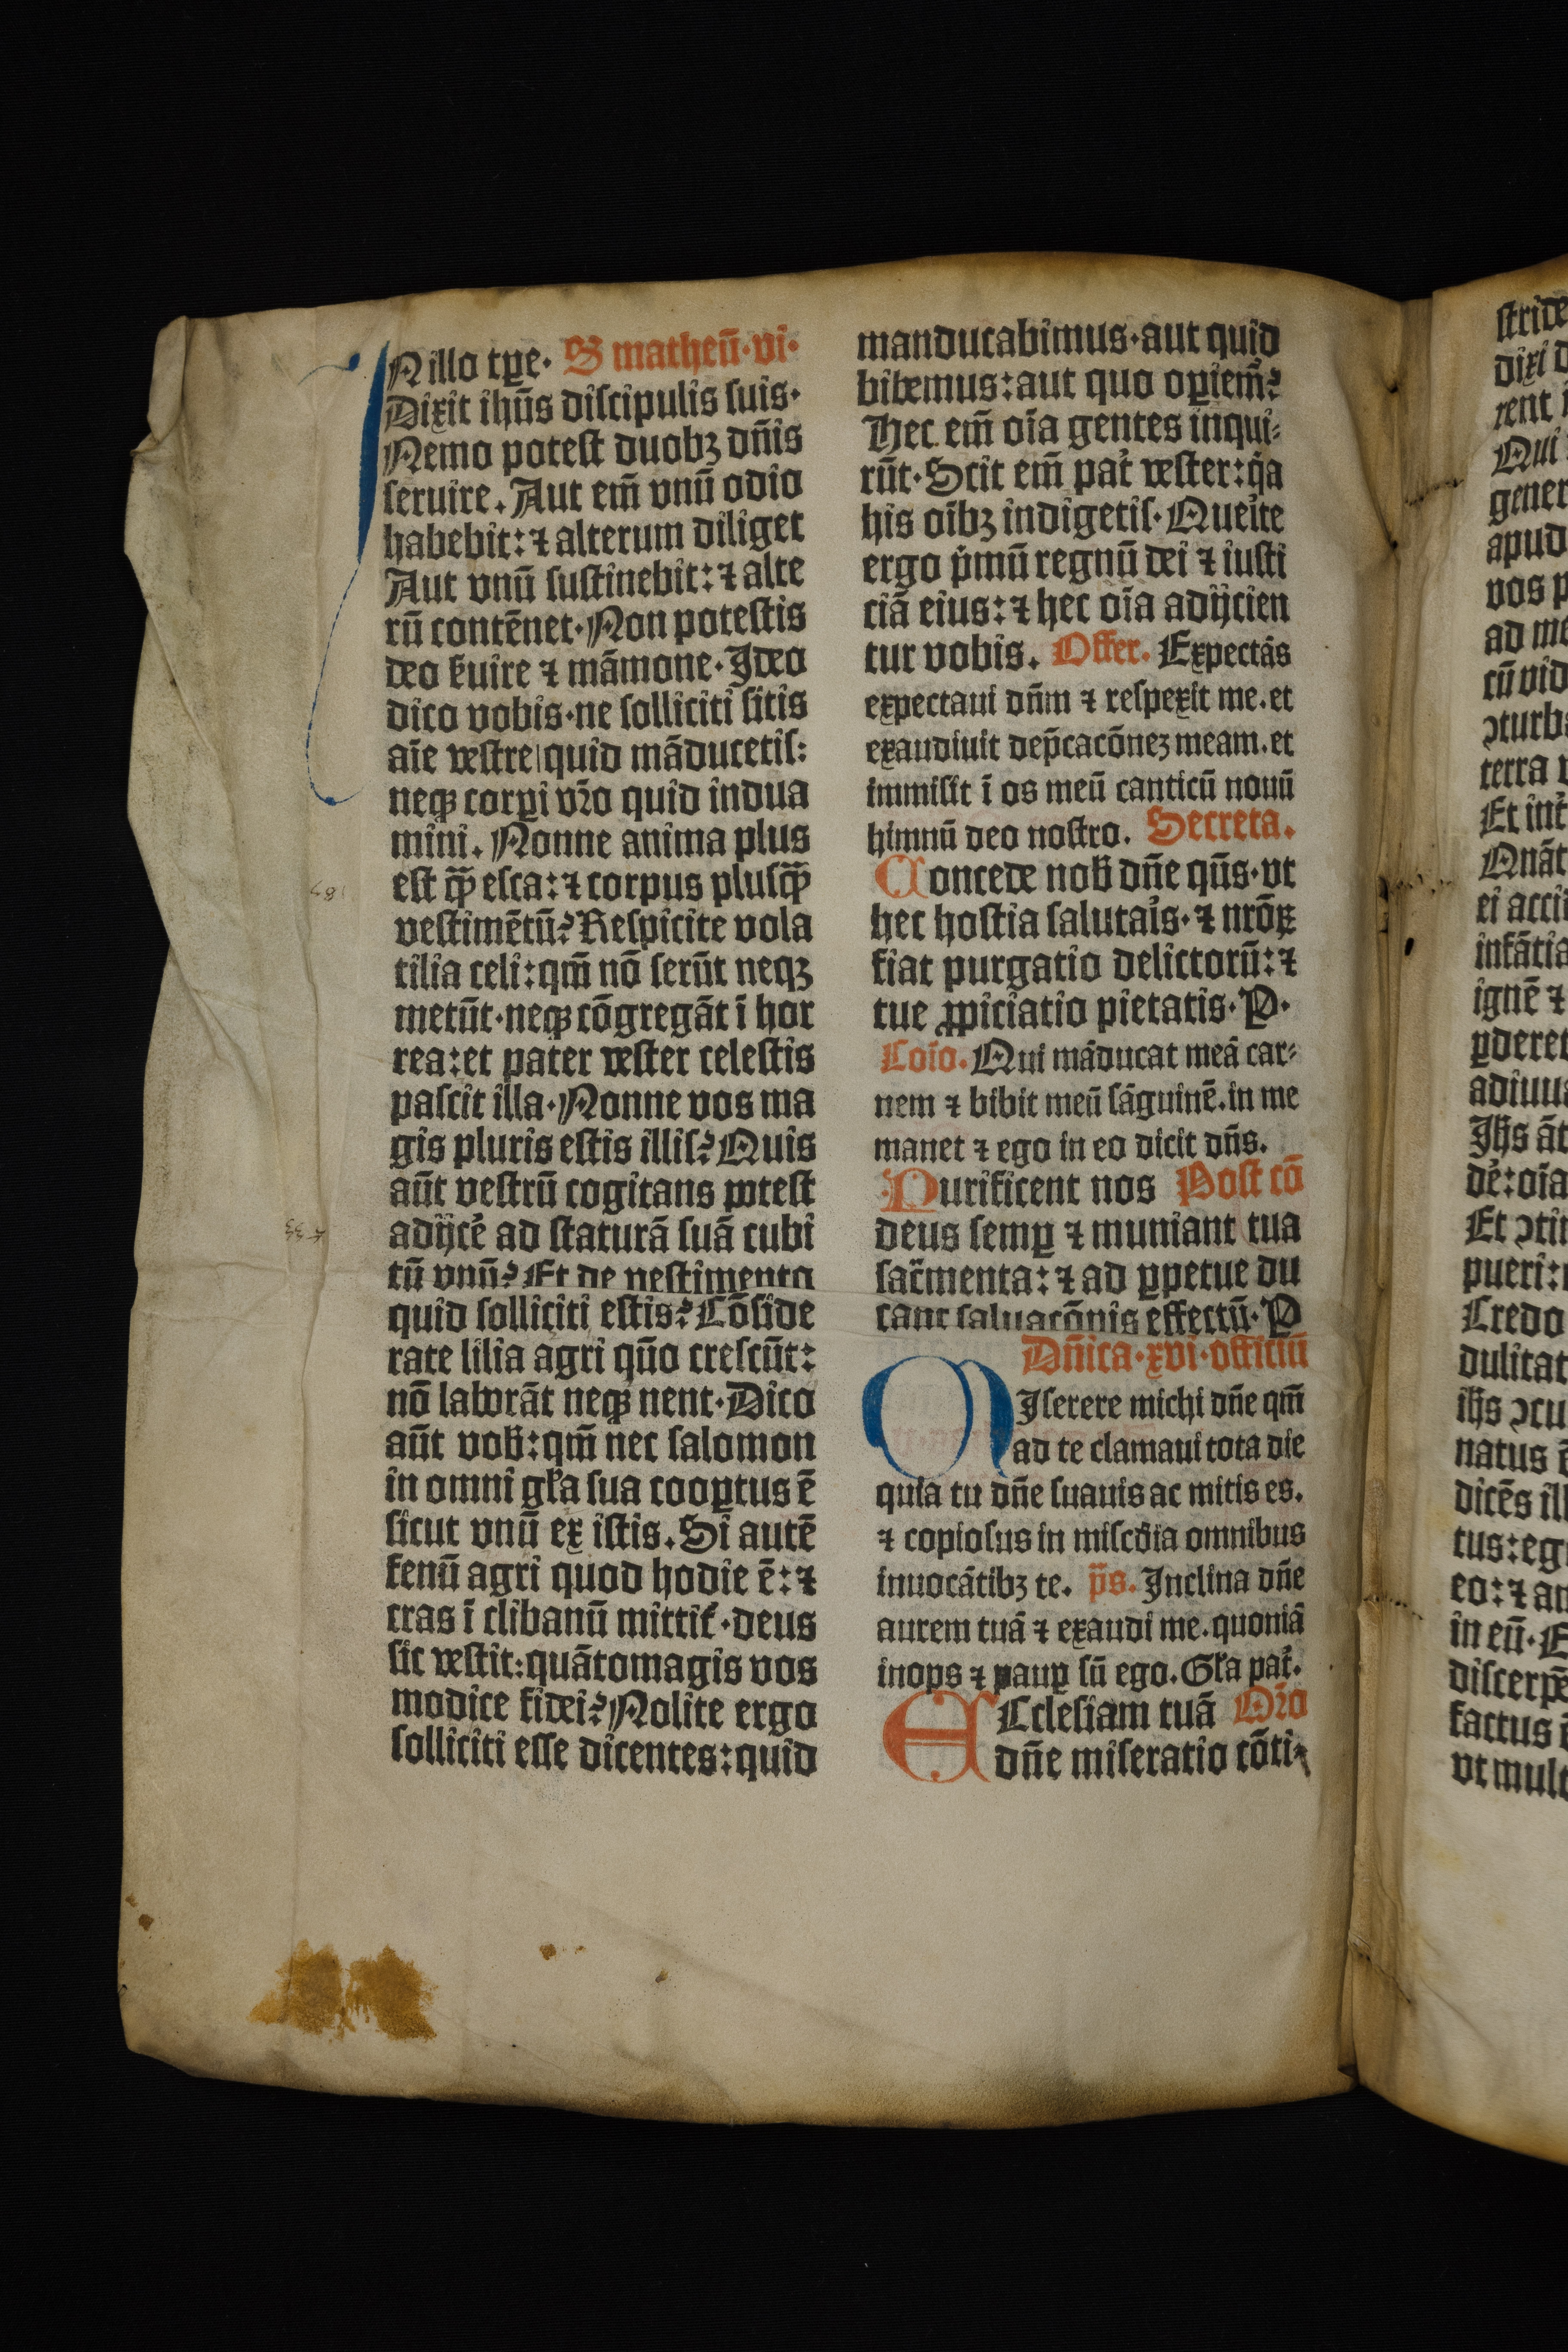 IN illo tꝑe· S matheū·vi·
Dixit ihūs discipulis suis·
Nemo potest duobꝫ dn̄is
seruire. Aut em̄ vnū odio
habebit: ⁊ alterum diliget
Aut vnū sustinebit: ⁊ alte
rū contēnet· Non potestis
deo ẜuire ⁊ māmone· Ideo
dico vobis·ne solliciti sitis
aīe vestre quid māducetis:
neqꝫ corꝑi vr̄o quid indua
mini. Nonne anima plus
est qꝫ̄ esca: ⁊ corpus plusqꝫ̄
vestimētū? Respicite vola
tilia celi: qm̄ nō serūt neqꝫ
metūt·neqꝫ cōgregāt ī hor
rea: et pater vester celestis
pascit illa· Nonne vos ma
gis pluris estis illis? Quis
aūt vestrū cogitans potest
adijcē ad staturā suā cubi
tū vnū? Et de vestimento
quid solliciti estis? Cōside
rate lilia agri quō crescūt:
nō laborāt neqꝫ nent· Dico
aūt vob̄: qm̄ nec salomon
in omni gl̄a sua cooꝑtus ē
sicut vnū ex istis. Si autē
fenū agri quod hodie ē: ⁊
cras ī clibanū mittit᷑·deus
sic vestit: quātomagis vos
modice fidei? Nolite ergo
solliciti esse dicentes: quid
manducabimus·aut quid
bibemus: aut quo oꝑiem̄?
Hec em̄ oīa gentes inqui⸗
rūt· Scit em̄ pat᷑ vester: qͣa
his oībꝫ indigetis· Queīte
ergo pͥmū regnū dei ⁊ iusti
ciā eius: ⁊ hec oīa adijcien
tur vobis. Offer. Expectās
expectaui dn̄m ⁊ respexit me. et
exaudiuit dep̄cacōneꝫ meam. et
immisit ī os meū canticū nouū
himnū deo nostro. Secreta.
Concede nob̄ dn̄e qūs·vt
hec hostia salutaīs·⁊ nrōꝝ
fiat purgatio delictorū: ⁊
tue ꝓpiciatio pietatis· P·
Coīo. Qui māducat meā car⸗
nem ⁊ bibit meū sāguinē. in me
manet ⁊ ego in eo dicit dn̄s.
Purificent nos Post cō
deus semꝑ ⁊ muniant tua
sac̄menta: ⁊ ad ꝑpetue du
cant saluacōnis effectū· P
Dn̄ica·xvi·officiū
MIserere michi dn̄e qm̄
ad te clamaui tota die
quia tu dn̄e suauis ac mitis es.
⁊ copiosus in miscd̄ia omnibus
inuocātibꝫ te. p̄s. Inclina dn̄e
aurem tuā ⁊ exaudi me. quoniā
inops ⁊ pauꝑ sū ego. Gl̄a pat᷑.
ECclesiam tuā Or̄o
dn̄e miseratio cōti⸗